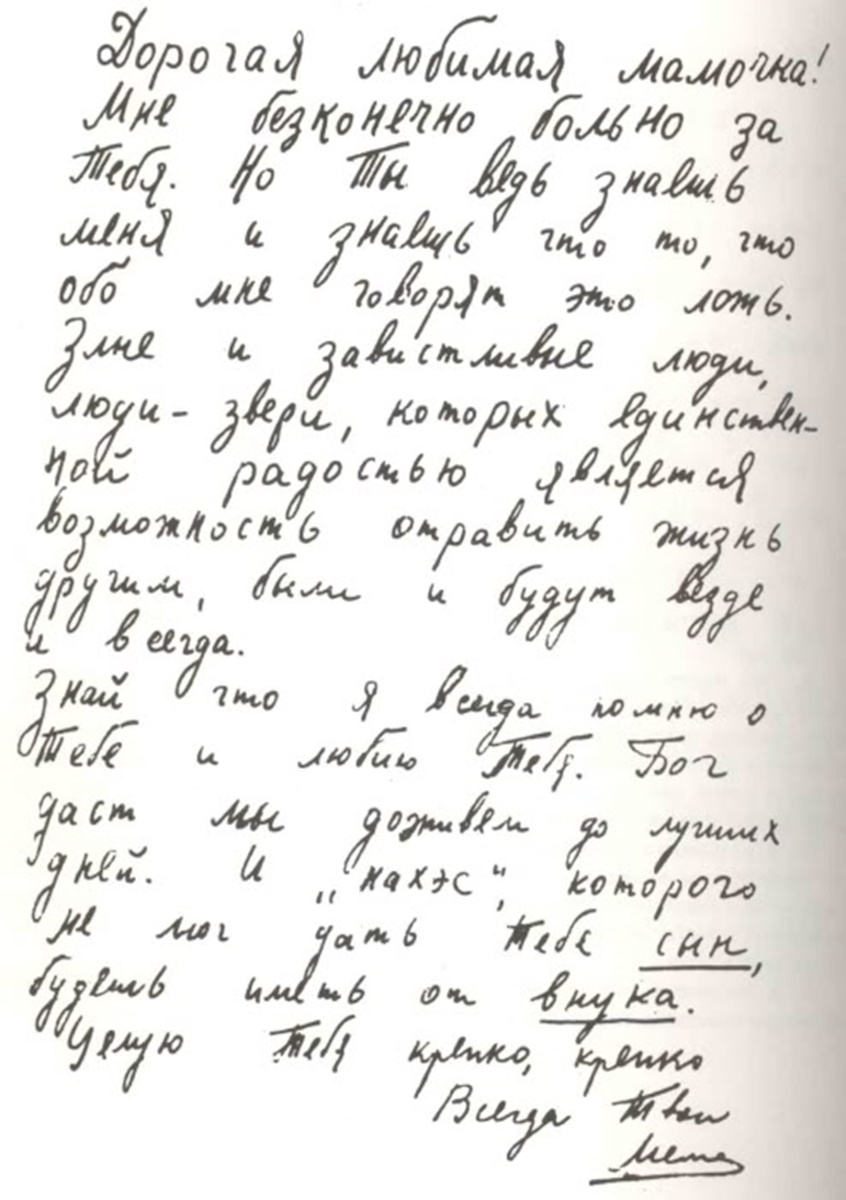 Дорогая любимая мамочка!
Мне безконечно больно за
Тебя. Но Ты ведь знаешь
меня и знаешь что то, что
обо мне говорят это ложь.
Злые и завистливые люди,
люди – звери, которых единствен-
ной радостью является
возможность отравить жизнь
другим, были и будут везде
и всегда.
Знай что я всегда помню о
Тебе и люблю Тебя. Бог
даст мы доживем до лучших
дней. И „нахэс“, которого
не мог дать Тебе сын,
будешь иметь от внука.
Целую Тебя крепко, крепко
Всегда Твой